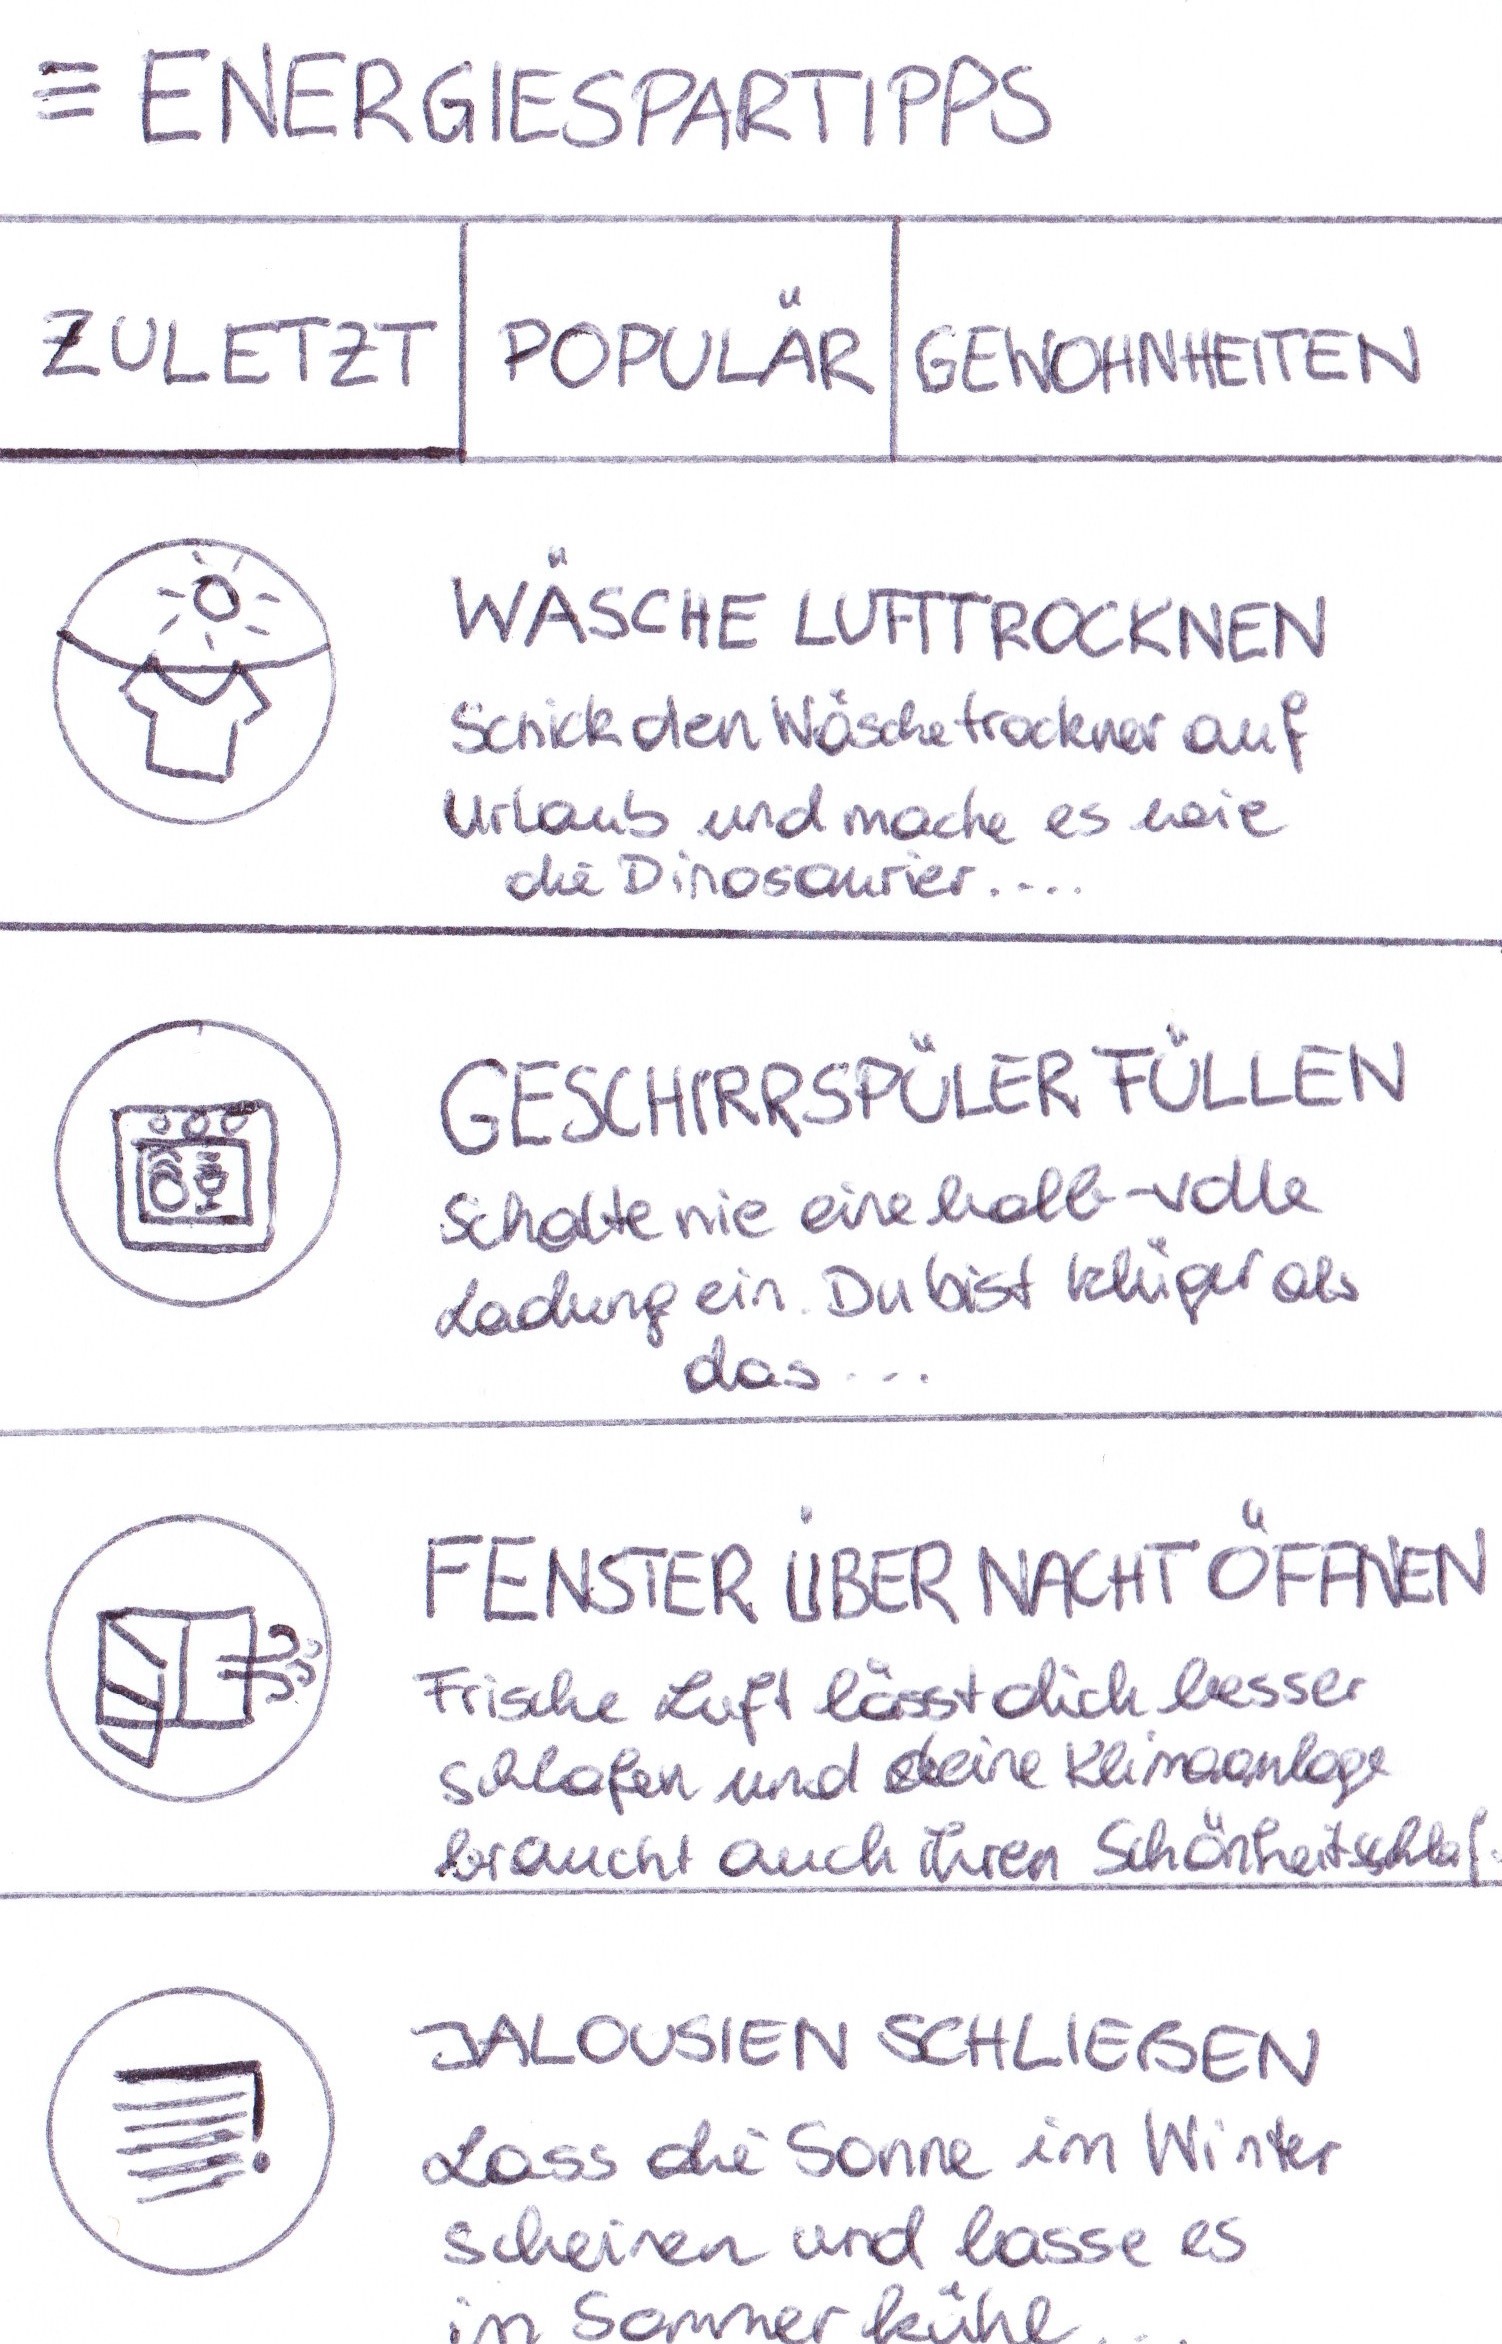 ENERGIESPARTIPPS
ZULETZT POPULÄR GEWOHNHEITEN
WÄSCHE LUFTTROCKNEN
Schick den Wäschetrockner auf
Urlaub und mache es wie
die Dinosaurier....
GESCHIRRSPÜLER FÜLLEN
Schalte nie eine halb-volle
Ladung ein. Du bist klüger als
das...
FENSTER ÜBER NACHT ÖFFNEN
Frische Luft lässt dich besser
schlafen und deine Klimaanlage
braucht auch ihren Schönheitschlaf.
JALOUSIEN SCHLIEßEN
Lass die Sonne im Winter
scheinen und lasse es
in Sommer kühl...